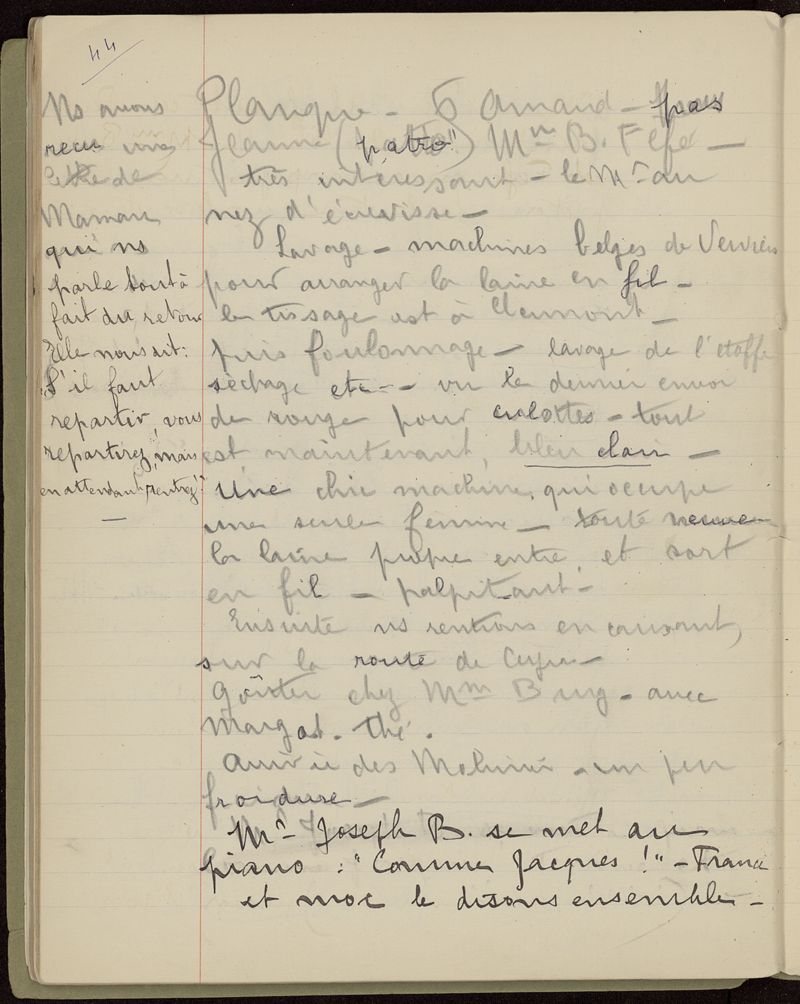 44
Ns avons
reçu une
lettre de
Maman
qui ns
parle tout à
fait du retour
Elle nous dit:
"S'il faut
repartir, vous
repartirez, mais
en attendant, rentrez!"
Planque - Amand - pas
Jeanne (patro") Mme B. Fefe -
très intéressant - le Mr au
nez d'écrevisse -
Lavage - machines belges de Verviers
pour arranger la laine en fil -
le tissage est à Clermont -
puis foulonnage - lavage de l'étoffe
séchage etc-- vu le dernier envoi
de rouge pour culottes - tout
est maintenant, bleu clair -
Une chic machine, qui occupe
une seule femme - toute neuve -
la laine propre entre, et sort
en fil - palpitant -
Ensuite ns rentrons en causant,
sur la route de
Goûter chez Mme Burg - avec
Margot. Thé.
Arrivée des - un peu
froidure -
Mr Joseph B. se met au
piano : "Comme Jacques !" - France
et moi le disons ensemble -